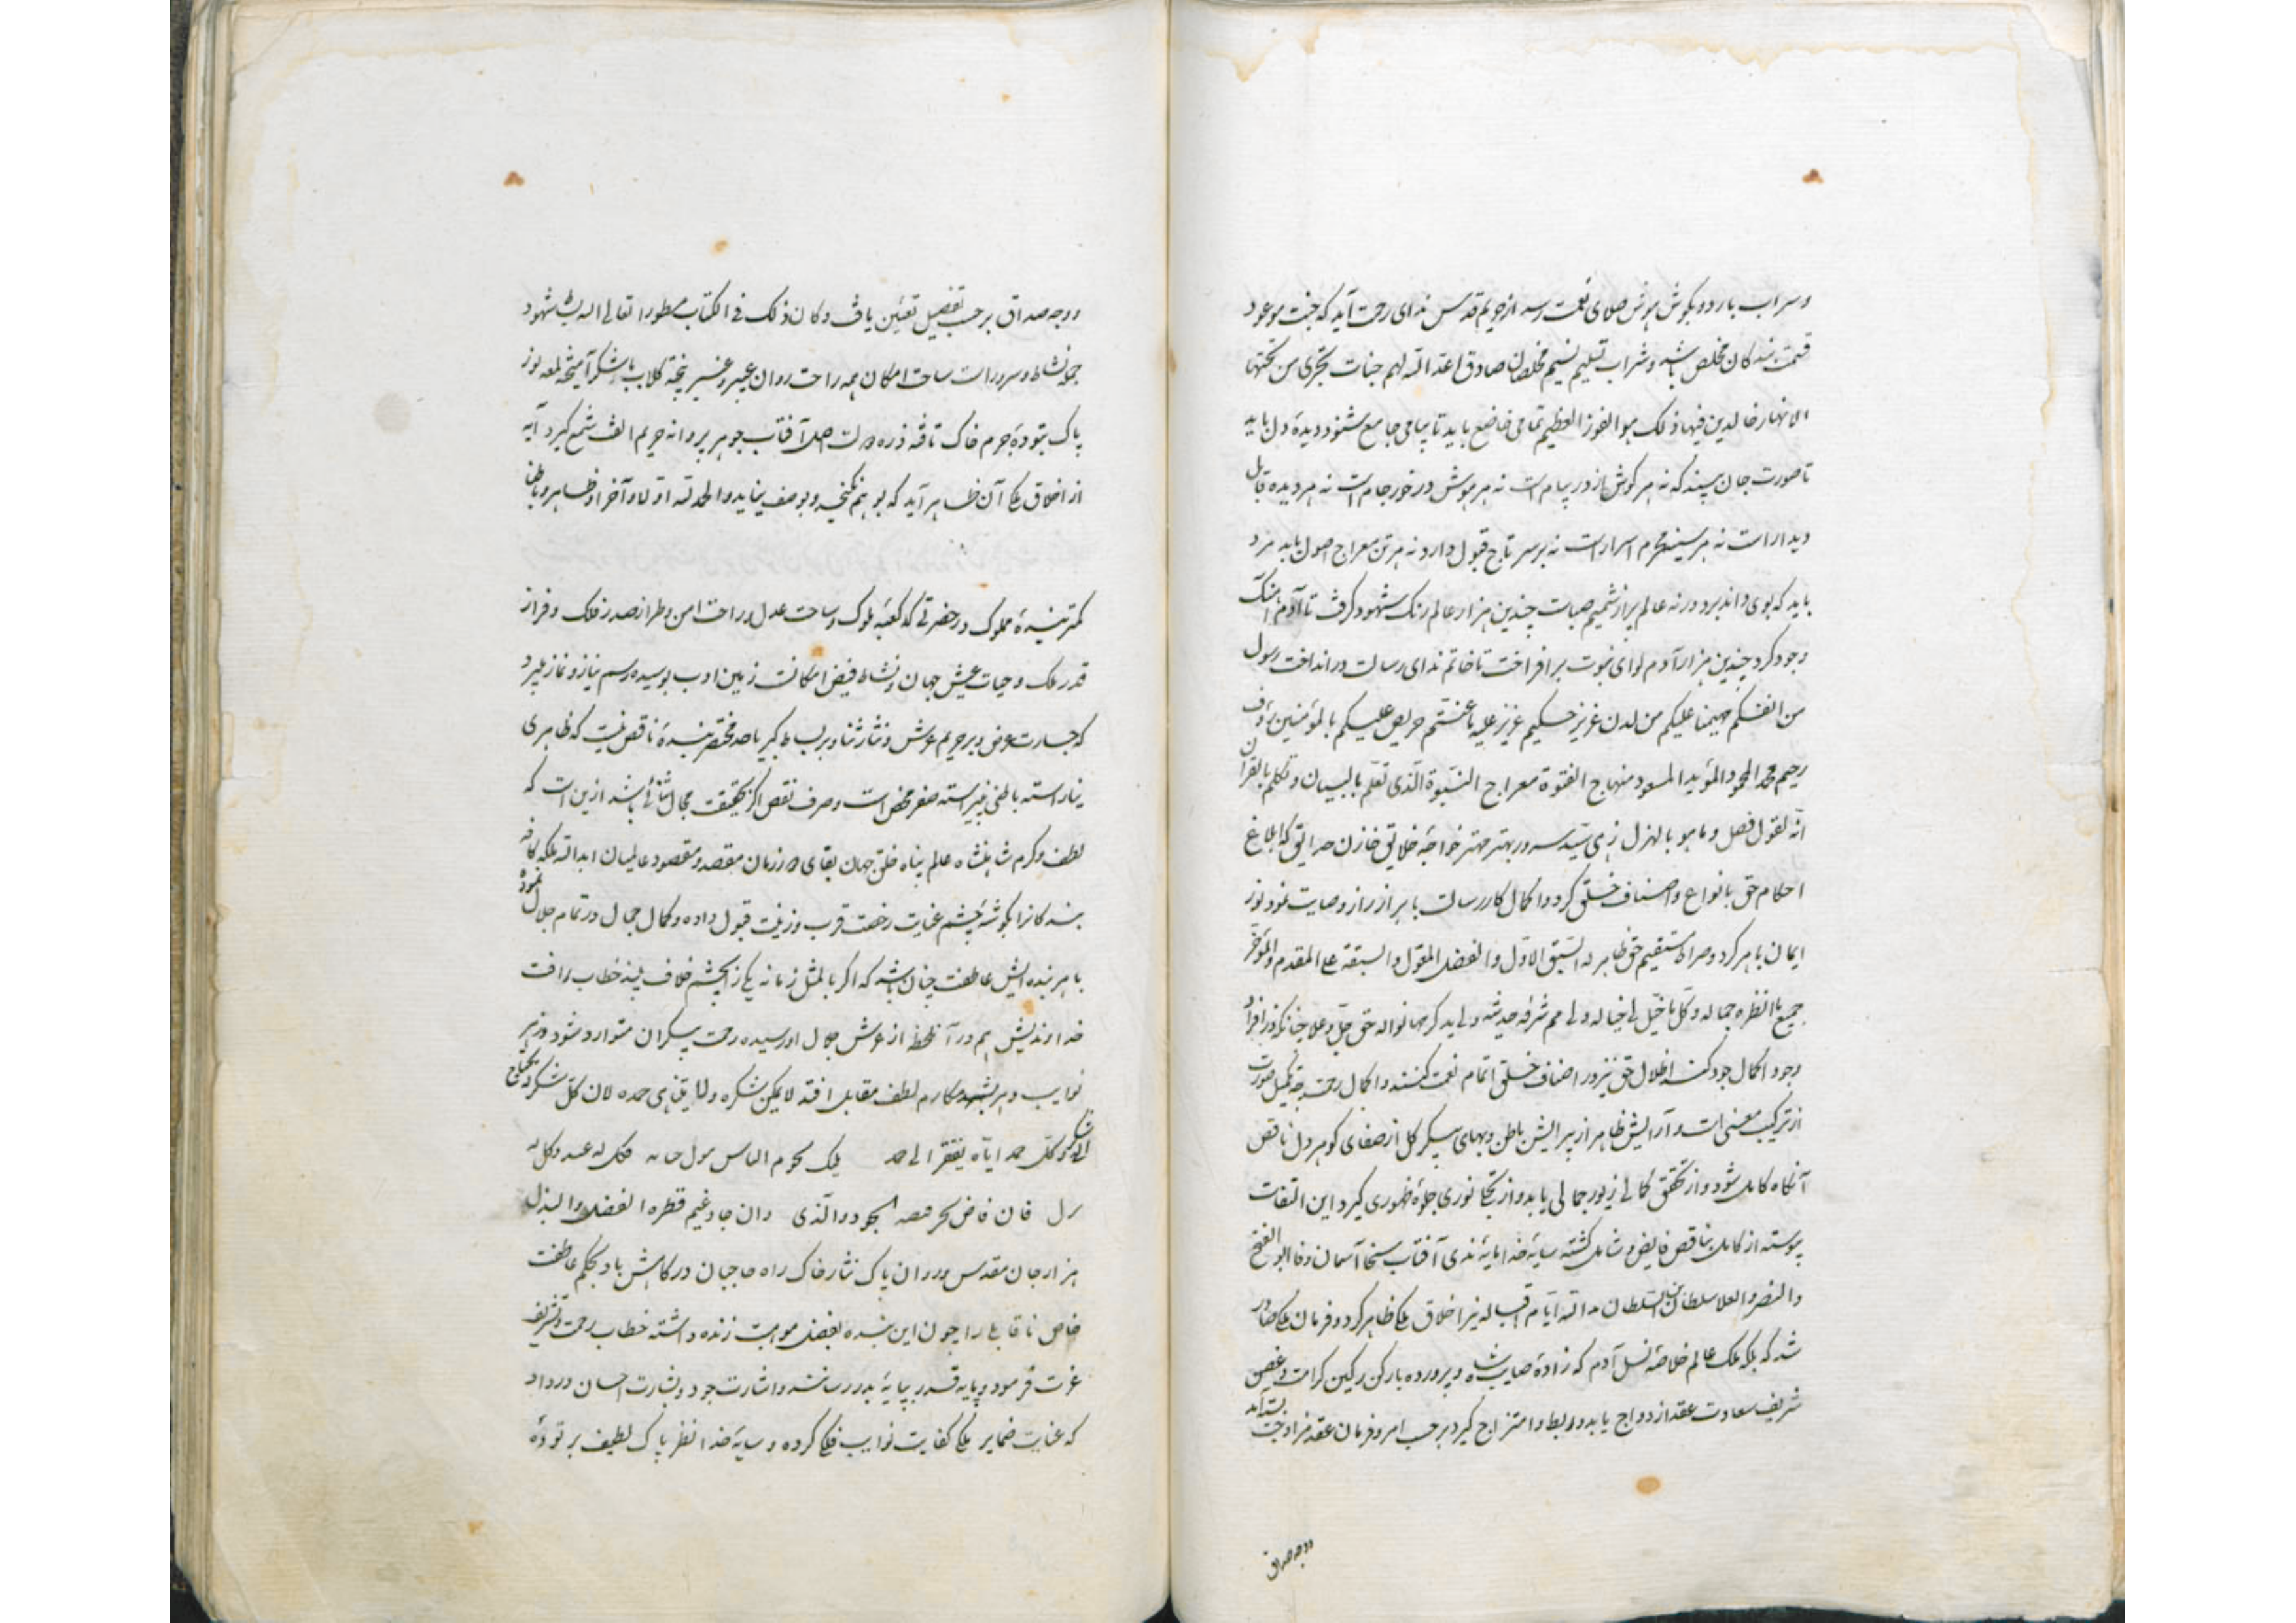 و سراب بارد و بگوش هوش صلای نعمت رسد از حریم قدس ندای رحمت آید که جنت موعود
قسمت بندکان مخلص باشد و شراب تسلیم نسیم مخلصان صادق اعد الله لهم جنات تجری من تحتها
الانهار خالدین فیها ذلک هو الفوز العظیم تمامی خاضع باید تا پیامی جامع شنود و دیدهٔ دل باید
تا صورت جان بیند که نه هر کوش از در پیام است نه هر هوش در خور جام است نه هر دیده قابل
دیدار است نه هر سینه محرم اسرار است نه هر سر تاج قبول دارد نه هر تن معراج اصول باید مرد
باید که بوی داند برد ورنه عالم پر از شمیم صباست چندین هزار عالم رنک شهود کرفت تا آدم آهنک
وجود کرد چندین هزار آدم لوای نبوت برافراخت تا خاتم ندای رسالت در انداخت رسول
من انفسکم مهیمنا علیکم من لدن عزیز حکیم عزیز علیه ما عنتم حریص علیکم بالمؤمنین رؤف
رحیم محمد المحمود المؤید المسعود منهاج الفتوة معراج النبوة الذی تعلم بالبیان و تکلم بالقرآن
انه لقول فصل و ما هو بالهزل زهی سید سرور بهتر مهتر خواجهٔ خلایق خازن حدایق که ابلاغ
احکام حق بانواع و اصناف خلق کرد و اکمال کار رسالت بابراز راز وصایت نمود نور
ایمان باهر کرد و صراط مستقیم حق ظاهر له السبق الاول والفضل المقول والسبقة علی المقدم والمؤخر
جمیع ما انظره جماله و کل ما خیل لی خیاله
وجود اکمال جود کند اظلال حق نیز در اصناف خلق اتمام نعمت کنند و اکمال رحمت چه تکمیل صورت
از ترکیب معنی است و آرایش ظاهر از پیرایش باطن و بهای پیکر کل از صفای کوهر دل ناقص
آنکاه کامل شود و از تحقق کمالی زیور جمالی یابد و از تجلی نوری جلوهٔ ظهوری کیرد این التفات
پیوسته از کامل بناقص فایض و شامل کشته سایهٔ خدا مایهٔ ندی آفتاب سخا آسمان وفا ابو الفتح
والنصر والعلا سلطان السلطان مد الله ایام اقباله نیز اخلاق علی ظاهر کرد و فرمان علی صادر
شد که ملکهٔ ملک عالم خلاصهٔ نسل آدم که زادهٔ صلب شاه و پروردهٔ بارکن رکین کرامت و غصن
شریف سعادت عقد ازدواج یابد و ربط و امتزاج کیرد بر حسب امر و فرمان عقد مزاوجت بسته آمد
و وجه صداق
و وجه صداق بر حسب تفصیل تعیین یافت و کان ذلک فی الکتاب مسطورا تعالی الله
جو نشاط و سرور است ساحت امکان همه راحت روان عبیر و عنبر بیخته کلاب با شکر آمیخته لمعه نور
پاک بتودهٔ جرم خاک تافته ذره آفتاب جوهر پروانه حریم الفت شمع کیرد آیه
از اخلاق علی آن ظاهر آید که بوهم نکنجد و بوصف نیاید والحمد لله اولا و آخرا و ظاهرا و باطنا
کمترین بندهٔ مملوک در حضرتی که کعبهٔ ملوک و ساحت عدل و راحت امن و طراز صدر فلک و فراز
قدر ملک و حیات عیش جهان و نشاط فیض امکانست زمین ادب بوسیده رسم نیاز و نماز
که جسارت عرض در حریم عرش و نثار ثنا در بساط کبریا حد مختصر بندهٔ ناقص نیست که ظاهری
نیاراسته باطنی نپیراسته صفر محض است و صرف نقص اکر بحقیقت مجال ثنائی باشد ازین است که
لطف و کرم شاهنشاه عالم پناه خلق جهان بقای زمان مقصد و مقصود عالمیان ابد الله ملکه کافه
بندکانرا بکوشهٔ چشم عنایت رخصت قرب و زینت قبول داده و کمال جمال در تمام جلال نموده
با هر بنده‌ایش عاطفت چنان باشد که اکر بالمثل زمانه یکی را بچشم خلاف بیند خطاب رافت
خداوندیش هم در آن لحظه از عرش جلال او رسیده رحمت بیکران متوارد شود و در هر
نوایب مکارم لطف مقابل افتد لا یمکن شکره و لا یتناهی حمده لان کل شکر یحتاج
الی شکر و کل حمد ایاه یفتقر الی حمد
فان فاض بحر والذی وان جاد غیم قطره الفضل والبذل
هزار جان مقدس و روان پاک نثار خاک راه حاجبان درکاهش باد بحکم عاطفت
خاص ناقابلی را چون این بنده بفضل موهبت زنده داشته خطاب رحمت و تشریف
عزت فرمود و پایه قدر بپایهٔ بدر رسانند و اشارت جود و بشارت احسان در داد
که عنایت ضمایر علی کفایت نوایب فلکی کرده و سایهٔ خدا نظر پاک لطیف بر تودهٔ